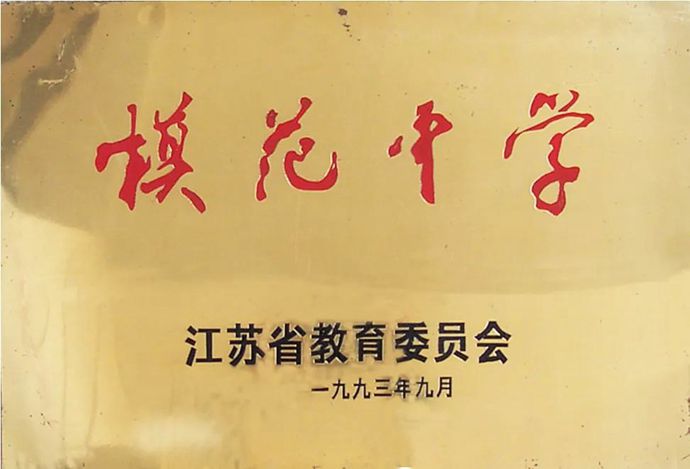 模范中学
江苏省教育委员会
一九九三年九月